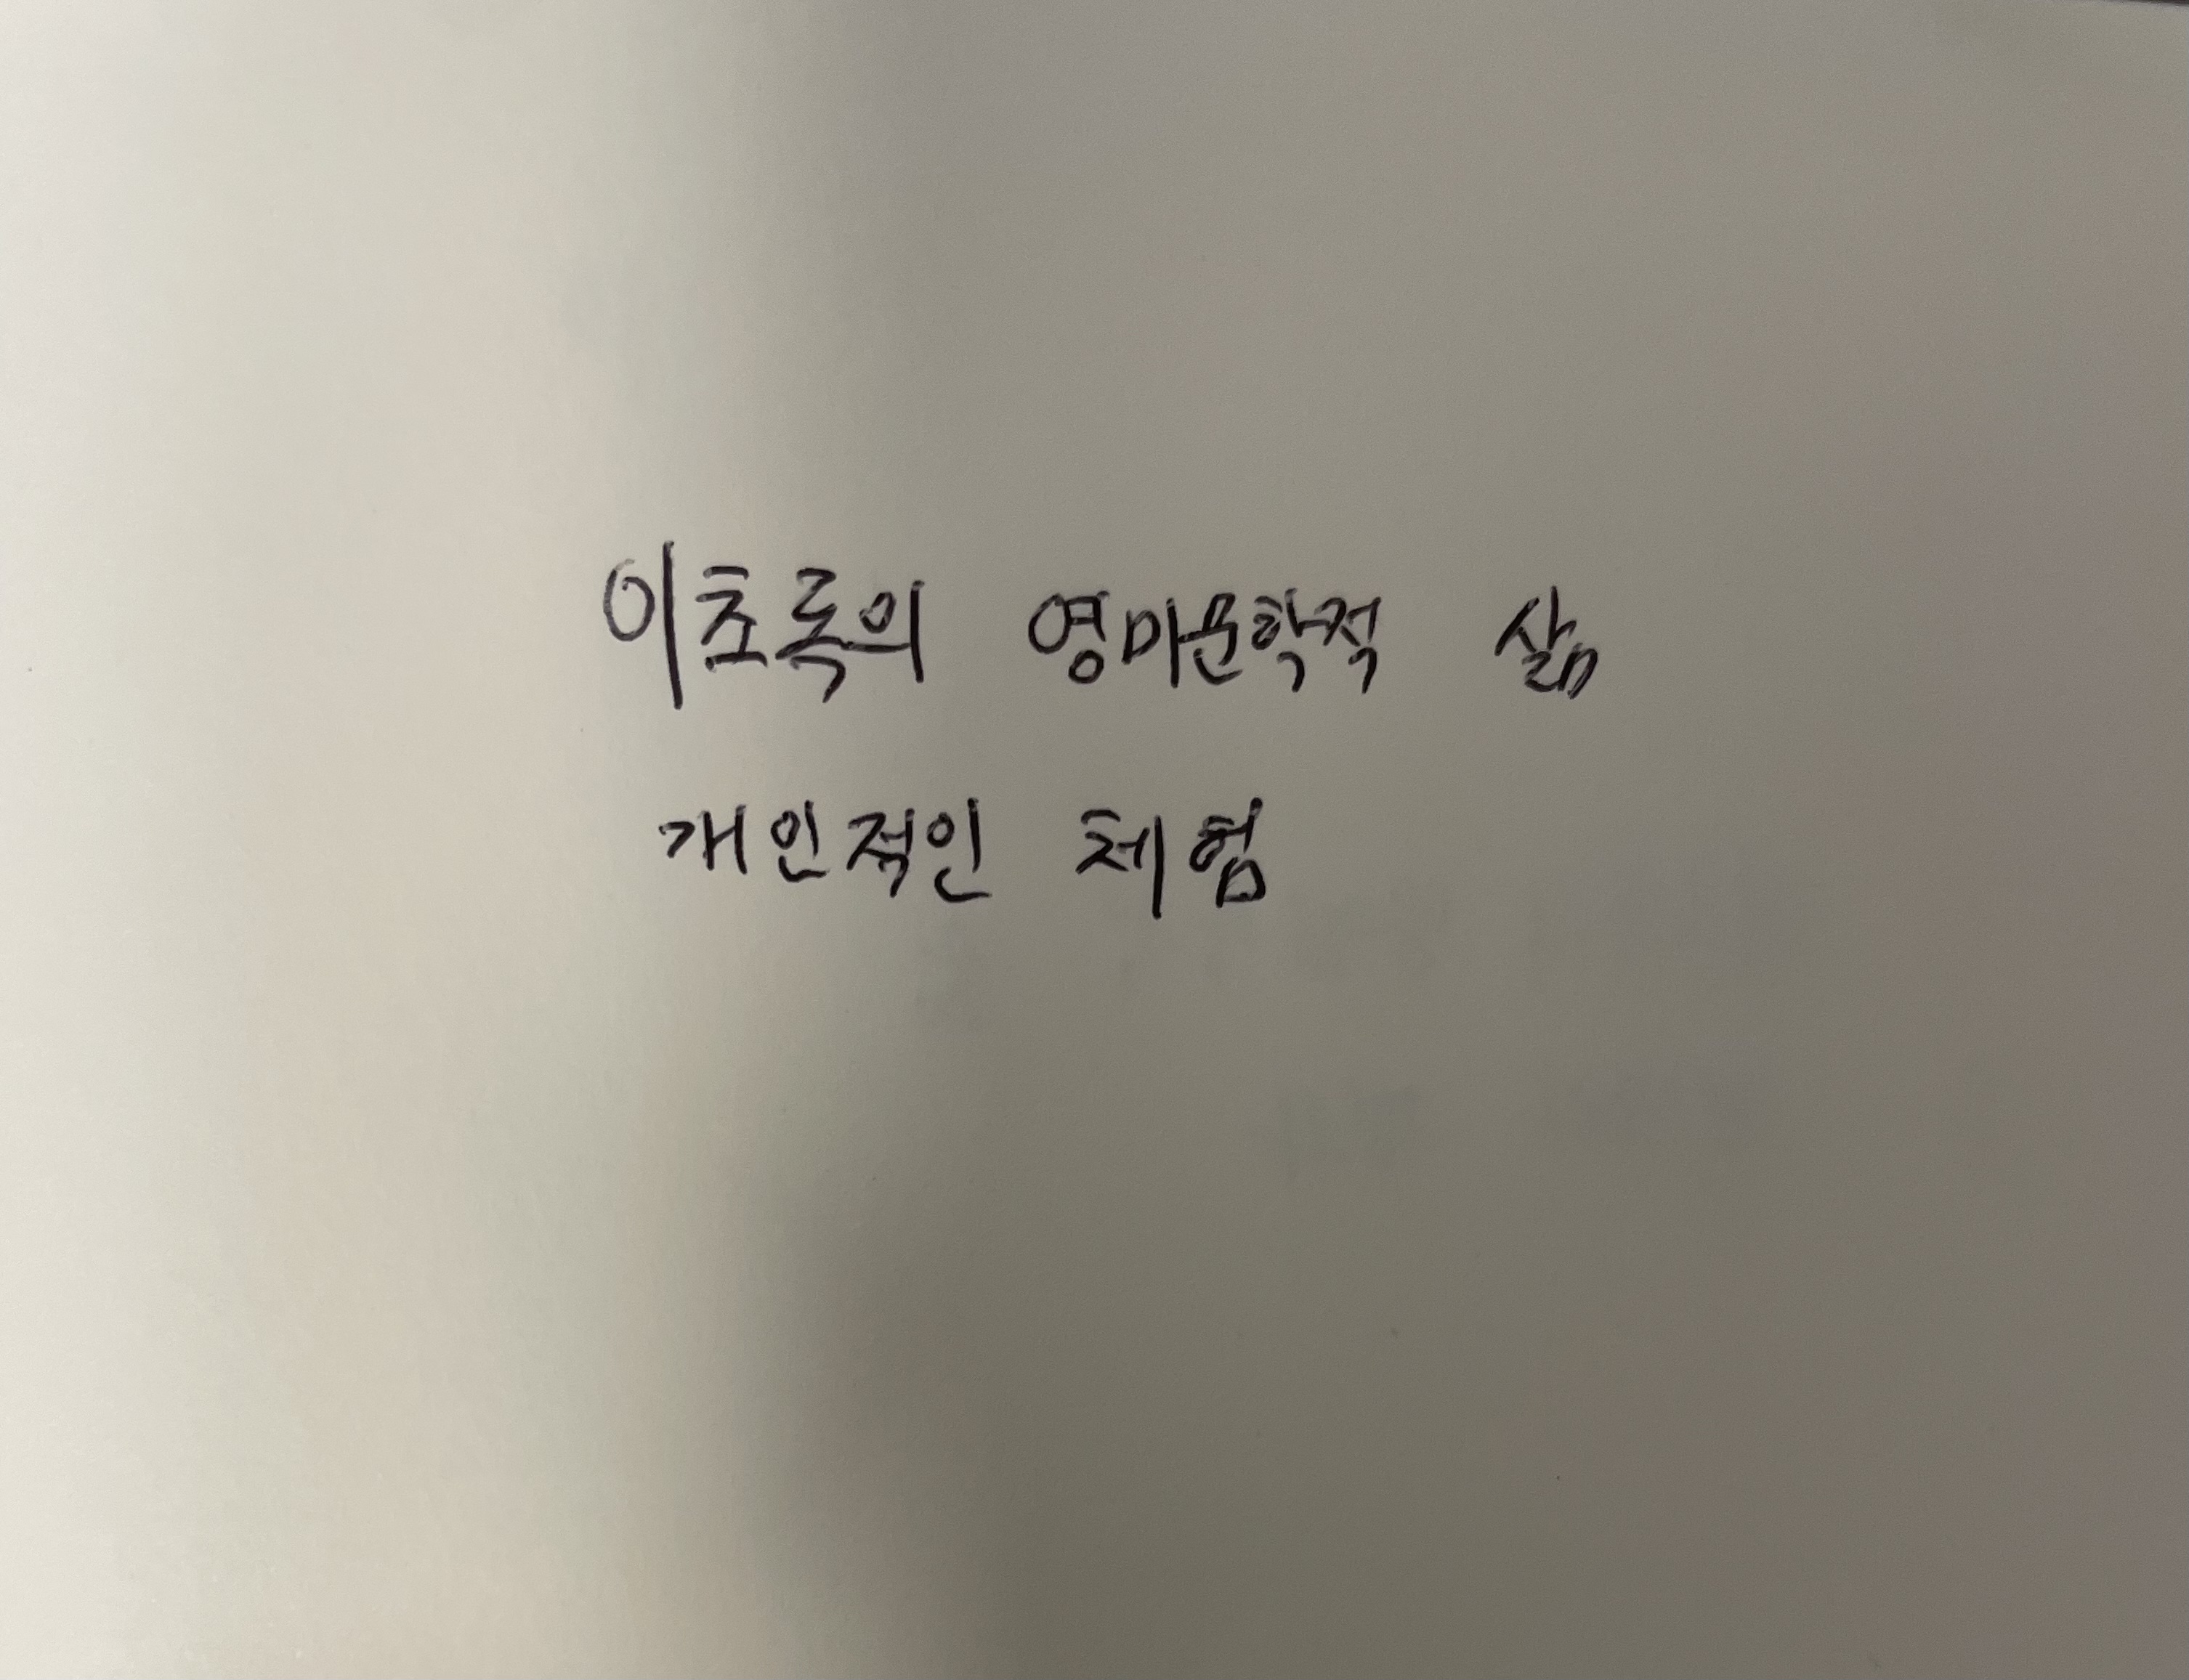 이초록의 영미문학적 삶
개인적인 체험